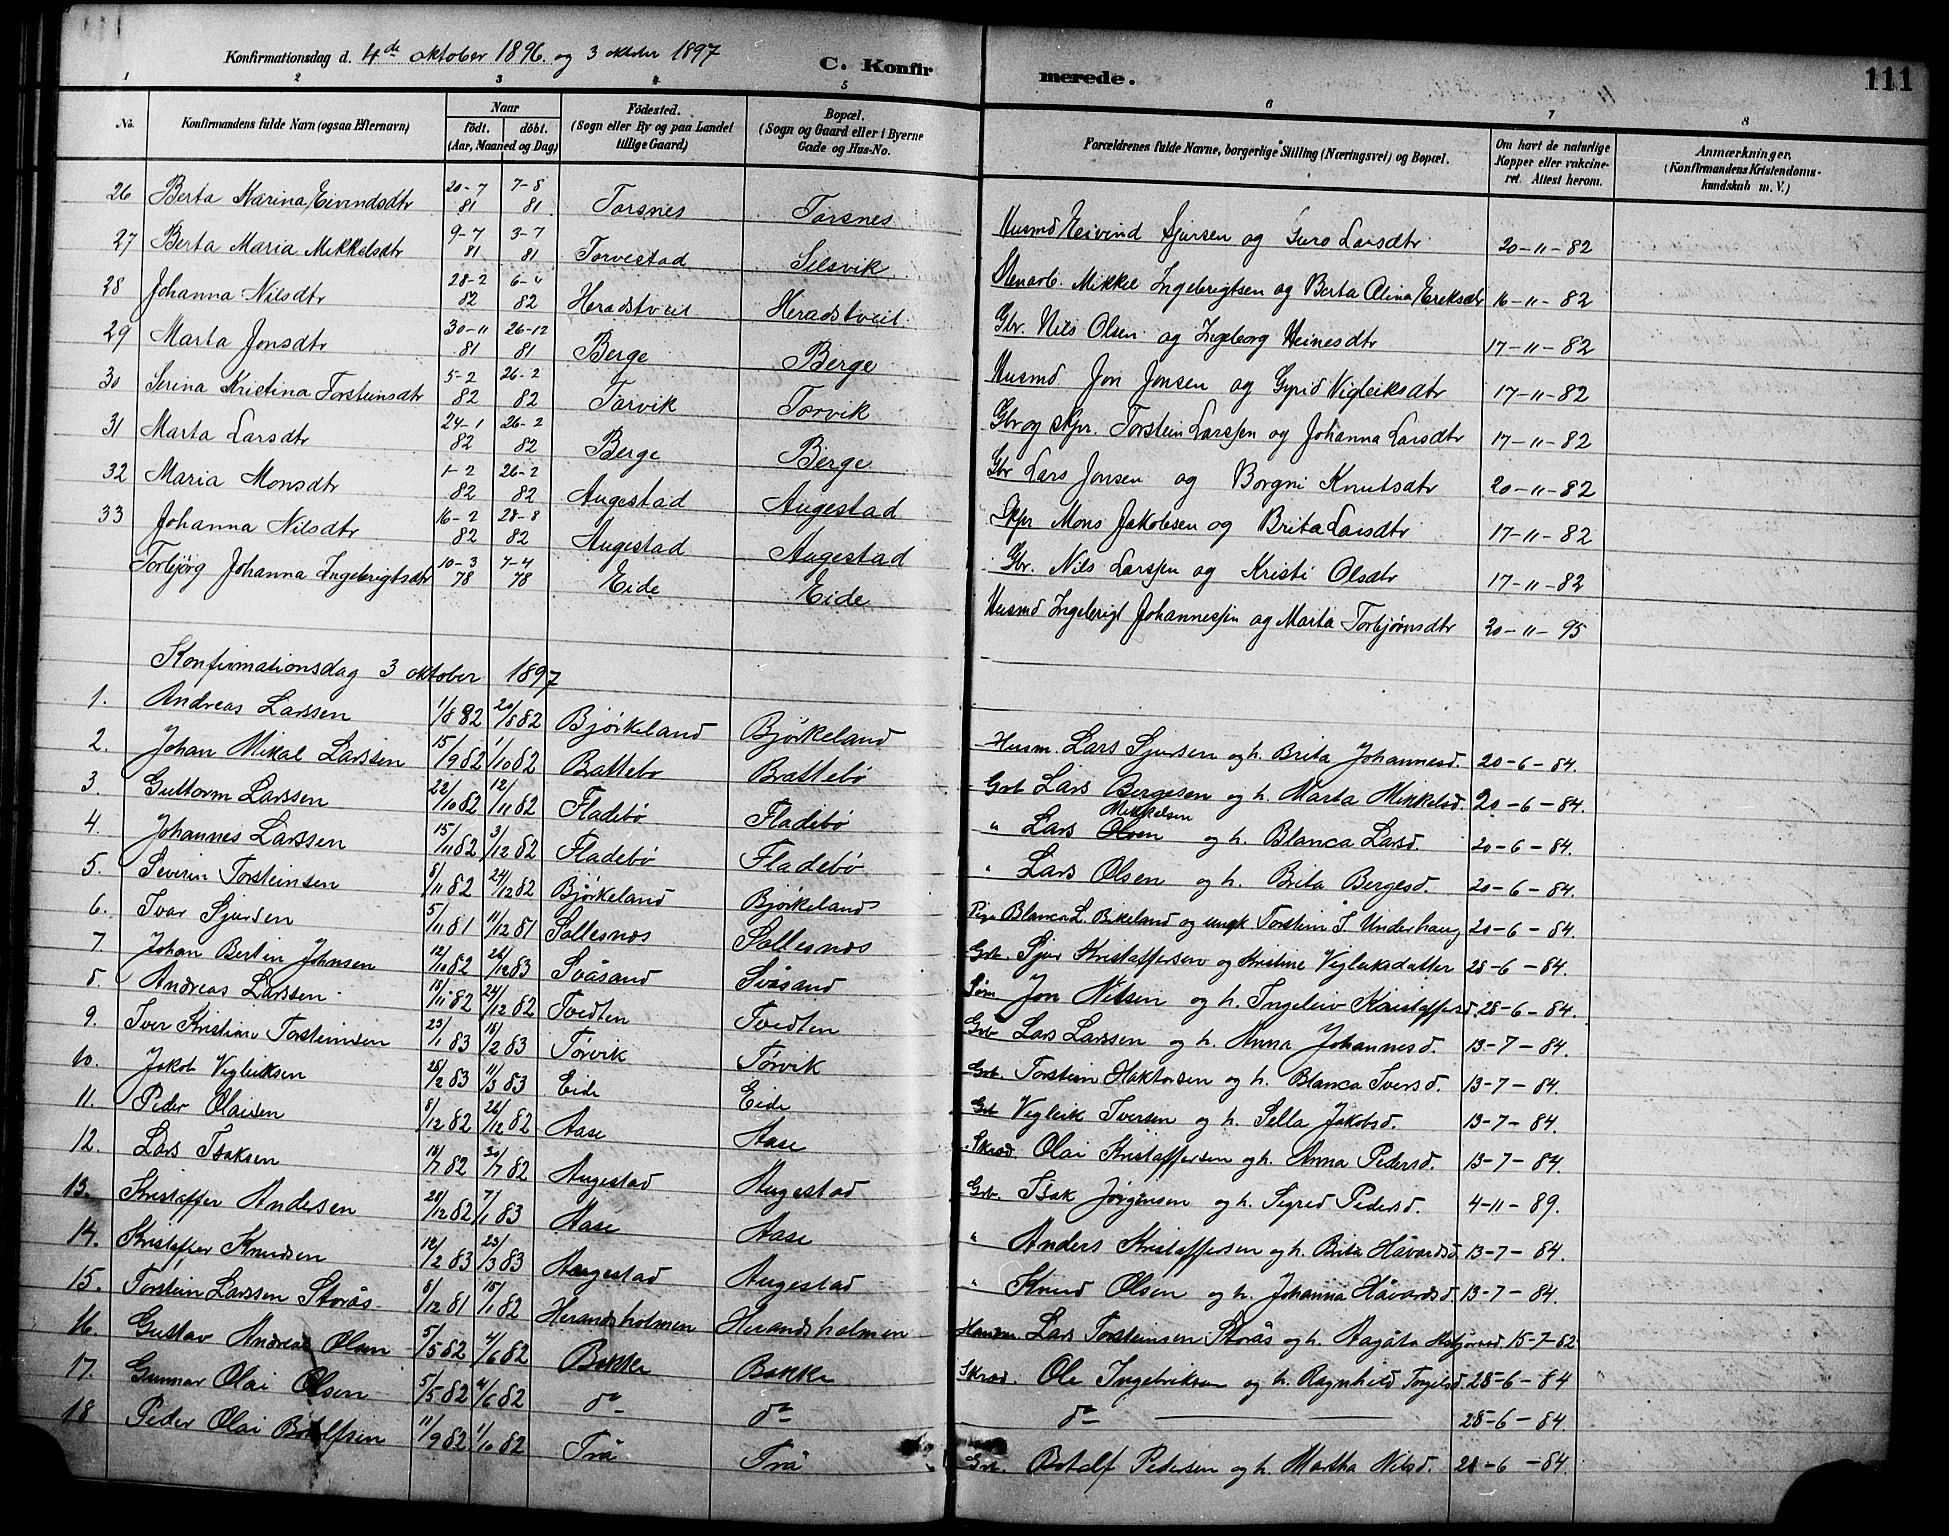 Konfirmationsdag d. 4de oktober 1896 og 3 oktober 1897
C. Konfirmerede.
111
1 2 3 4 5 6 7 8
No. Konfirmandens fulde Navn (ogsaa Efternavn) Naar født. døbt. (Aar, Maaned og Dag) Fødested. (Sogn eller By og paa Landet tillige Gaard) Bopæl. (Sogn og Gaard eller i Byerne Gade og Hus-No. Forældrenes fulde Navne, borgerlige Stilling (Næringsvei) og Bopæl. Om havt de naturlige Kopper eller vakcineret. Attest herom. Anmærkninger, (Konfirmandens Kristendomskundskab m. V.)
26 Berta Marina Eivindsdtr 20-7 81 7-8 81 Torsnes Torsnes Husmd Eivind Sjursen og Guro Larsdtr 20-11-82
27 Berta Maria Mikkelsdtr 9-7 81 3-7 81 Torvestad Selsvik Stenarb. Mikkel Ingebrigtsen og Berta Olina Eriksdtr 16-11-82
28 Johanna Nilsdtr 28-2 82 6-4 82 Heradstveit Heradstveit Gbr. Nils Olsen og Ingeborg Heinesdtr 17-11-82
29 Marta Jonsdtr 30-11 81 26-12 81 Berge Berge Husmd Jon Jonsen og Gyrid Vigleiksdtr 17-11-82
30 Serina Kristina Torsteinsdtr 5-2 82 26-2 82 Torvik Torvik Gbr og skpr. Torstein Larssen og Johanna Larsdtr 17-11-82
31 Marta Larsdtr 24-1 82 26-2 82 Berge Berge Gbr Lars Jonsen og Borgni Knutsdtr 20-11-82
32 Maria Monsdtr 1-2 82 26-2 82 Augestad Augestad Skpr Mons Jakobsen og Brita Larsdtr 17-11-82
33 Johanna Nilsdtr 16-2 82 28-8 82 Augestad Augestad Gbr. Nils Larssen og Kristi Olsdtr 17-11-82
Torbjørg Johanna Ingebrigtsdtr 10-3 78 7-4 78 Eide Eide Husmd Ingebrigt Johannessen og Marta Torbjørnsdtr 20-11-95
Konfirmationsdag 3 oktober 1897
1. Andreas Larssen 1/8 82 20/8 82 Bjørkeland Bjørkeland Husm. Lars Sjursen og h. Brita Johannesd. 20-6-84.
2. Johan Mikal Larssen 15/9 82 1/10 82 Brattebø Brattebø Grb Lars Bergesen og h. Marta Mikkelsd. 20-6-84.
3. Guttorm Larssen 22/10 82 12/11 82 Fladebø Fladebø " Lars Mikkelsen og h. Blanca Larsd. 20-6-84.
4. Johannes Larssen 15/11 82 3/12 82 Fladebø Fladebø " Lars Olsen og h. Brita Bergesd. 20-6-84.
5. Severin Torsteinsen 8/11 82 24/12 82 Bjørkeland Bjørkeland Pige Blanca L. Birkeland og ungk Torstein S. Underhaug 20-6-84.
6. Ivar Sjursen 5/11 81 11/12 81 Sollesnæs Sollesnæs Grb. Sjur Kristaffersen og Kristine Vigleiksdatter 28-6-84.
7 Johan Bertin Johnsen 12/10 82 26/12 83 Svåsand Svåsand Jon Nilsen og h. Ingeleiv Kristaffersd. 28-6-84.
8. Andreas Larssen 18/11 82 24/12 82 Tvedten Tvedten Grb Lars Larssen og h. Anna Johannesd. 13-7-84.
9. Iver Kristian Torsteinsen 23/1 83 18/2 83 Tørvik Tørvik Grb. Torstein Haktorsen og h. Blanca Iversd. 13-7-84.
10. Jakob Vigleiksen 25/2 83 11/3 83 Eide Eide Grb Vigleik Iversen og h. Sella Jakobsd. 13-7-84.
11. Peder Olaisen 8/12 82 26/12 82 Aase Aase Skræd Olai Kristaffersen og h. Anna Pedersd. 13-7-84.
12. Lars Isaksen 14/7 82 30/7 82 Augestad Augestad Grb. Isak Jørgensen og h. Sigrid Pedersd. 4-11-89.
13. Kristaffer Andersen 28/12 82 7/1 83 Aase Aase " Anders Kristaffersen og h. Brita Håvardsd. 13-7-84.
14. Kristaffer Knudsen 12/2 83 23/3 83 Augestad Augestad " Knud Olsen og h. Johanna Håvardsd. 13-7-84.
15. Torstein Larssen Storås 8/12 81 15/1 82 Herandsholmen Herandsholmen Lars Torsteinsen Storås og h. Aagåta 15-7-82
16. Gustav Andreas Olsen 5/5 82 4/6 82 Bakke Bakke Skræd. Ole Ingebriksen og h. Ragnhild Torgilsd. 28-6-84
17. Gunnar Olai Olsen 5/5 82 4/6 82 do do do 28-6-84.
18 Peder Olai Botolfsen 11/9 82 1/10 82 Trå Trå Grb. Botolf Pedersen og h. Martha Nilsd. 28-6-84.